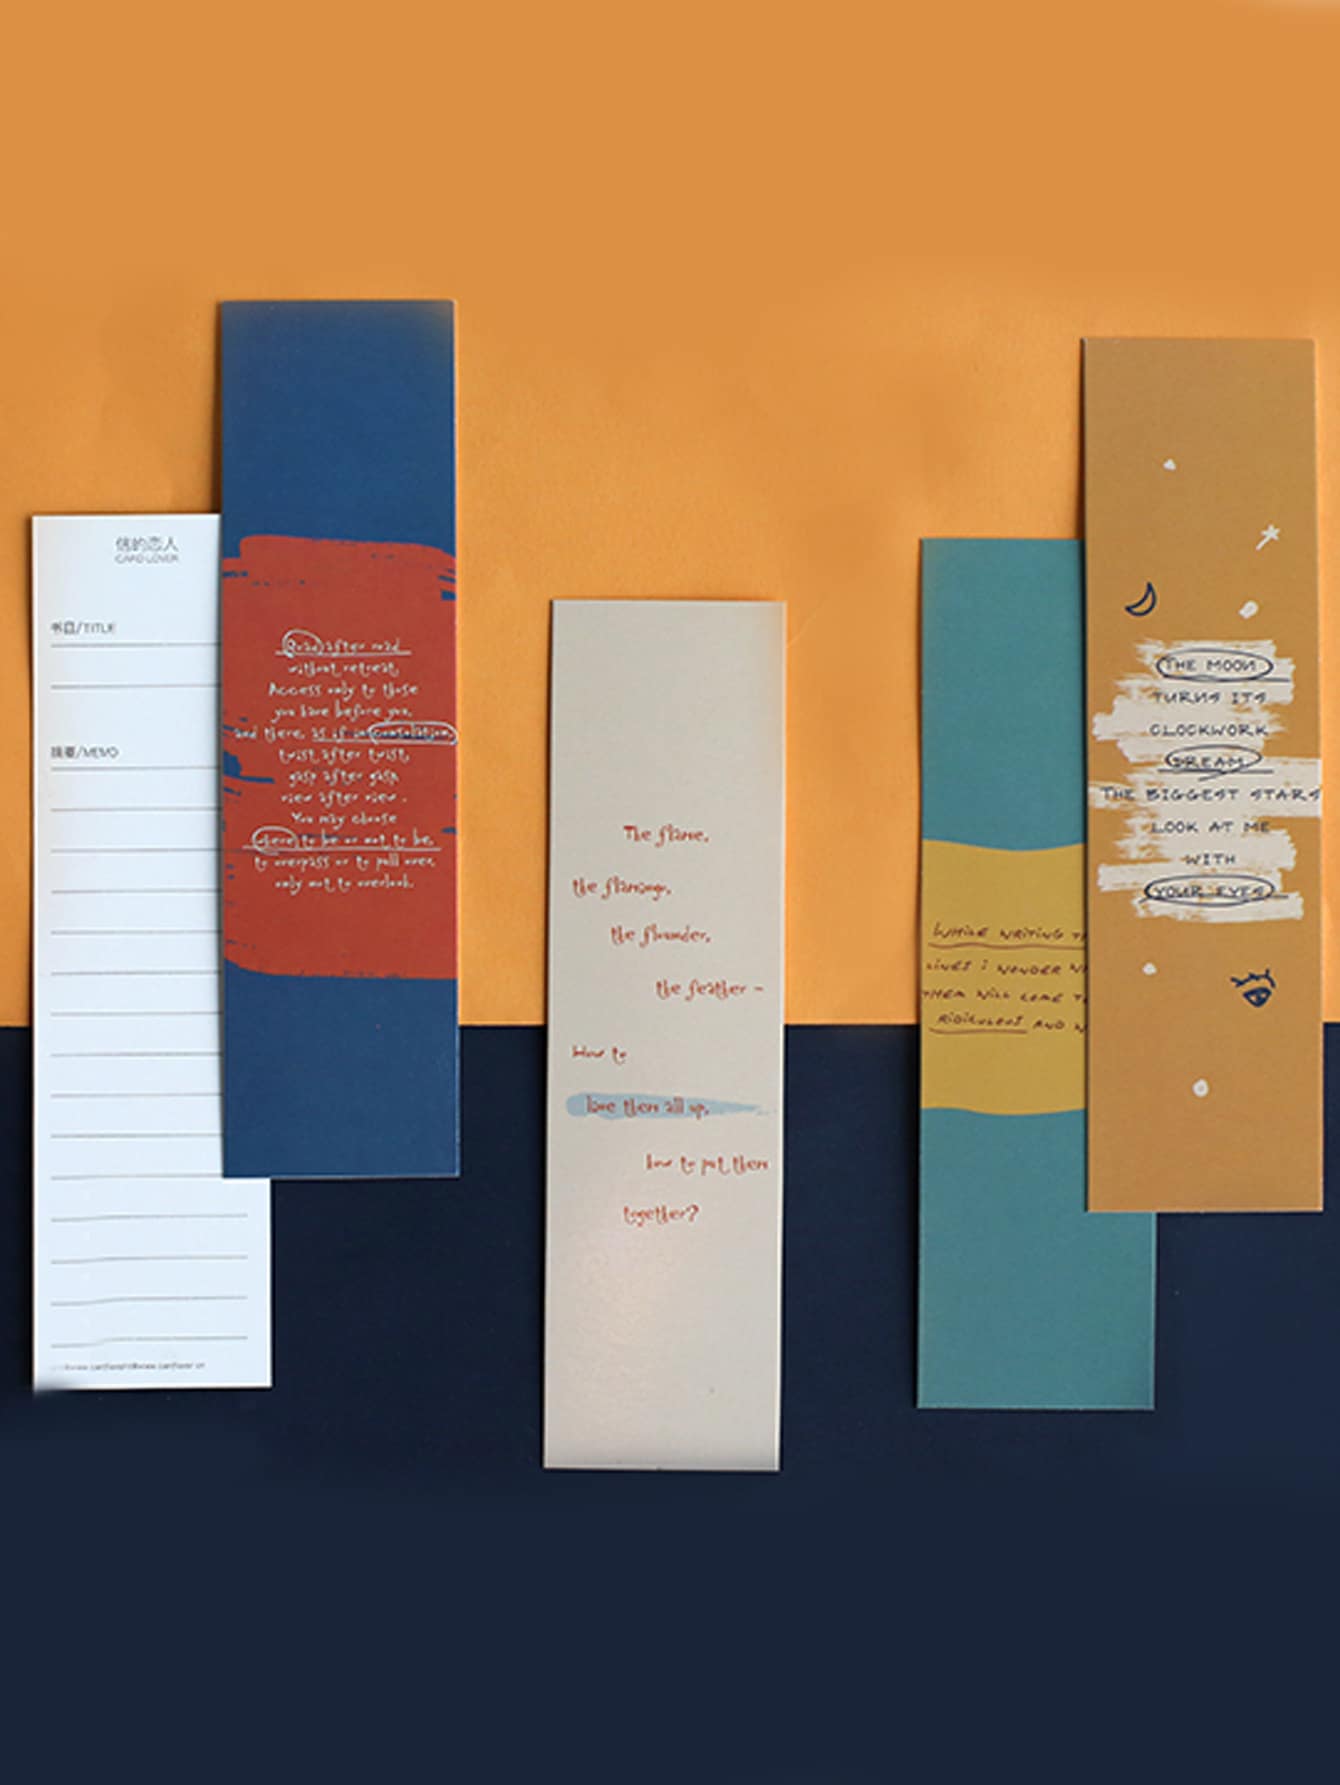 信的恋人
CARD LOVER
书目/TITLE
摘要/MEMO
Road after road
without retreat.
Access only to those
you have before you,
and there, as if in consolation,
twist after twist,
gasp after gasp
view after view.
You may choose
where to be or not to be,
to overpass or to pull over,
only not to overlook.
The flame,
the flamingo,
the flounder,
the feather –
how to
love them all up,
how to put them
together?
WHILE WRITING
LINES I WONDER
THEM WILL COME
RIDICULOUS AND
THE MOON
TURNS ITS
CLOCKWORK
DREAM.
THE BIGGEST STARS
LOOK AT ME
WITH
YOUR EYES.